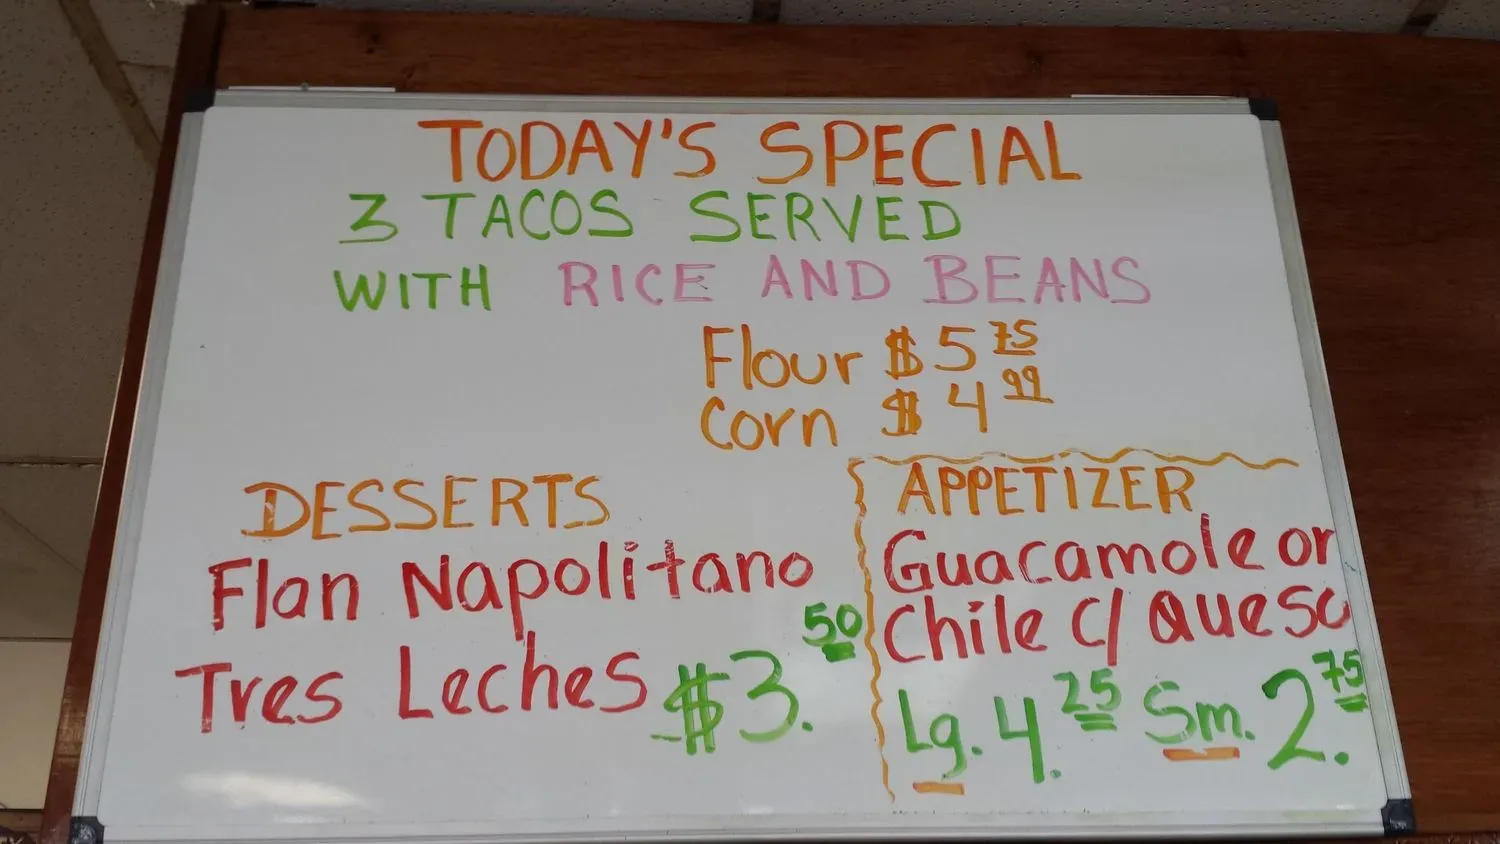 TODAY'S SPECIAL
3 TACOS SERVED
WITH RICE AND BEANS
Flour $5 75
Corn $4 99
DESSERTS
Flan Napolitano
Tres Leches $3. 50
APPETIZER
Guacamole or
Chile c/ Queso
Lg. 4. 25 Sm. 2. 75